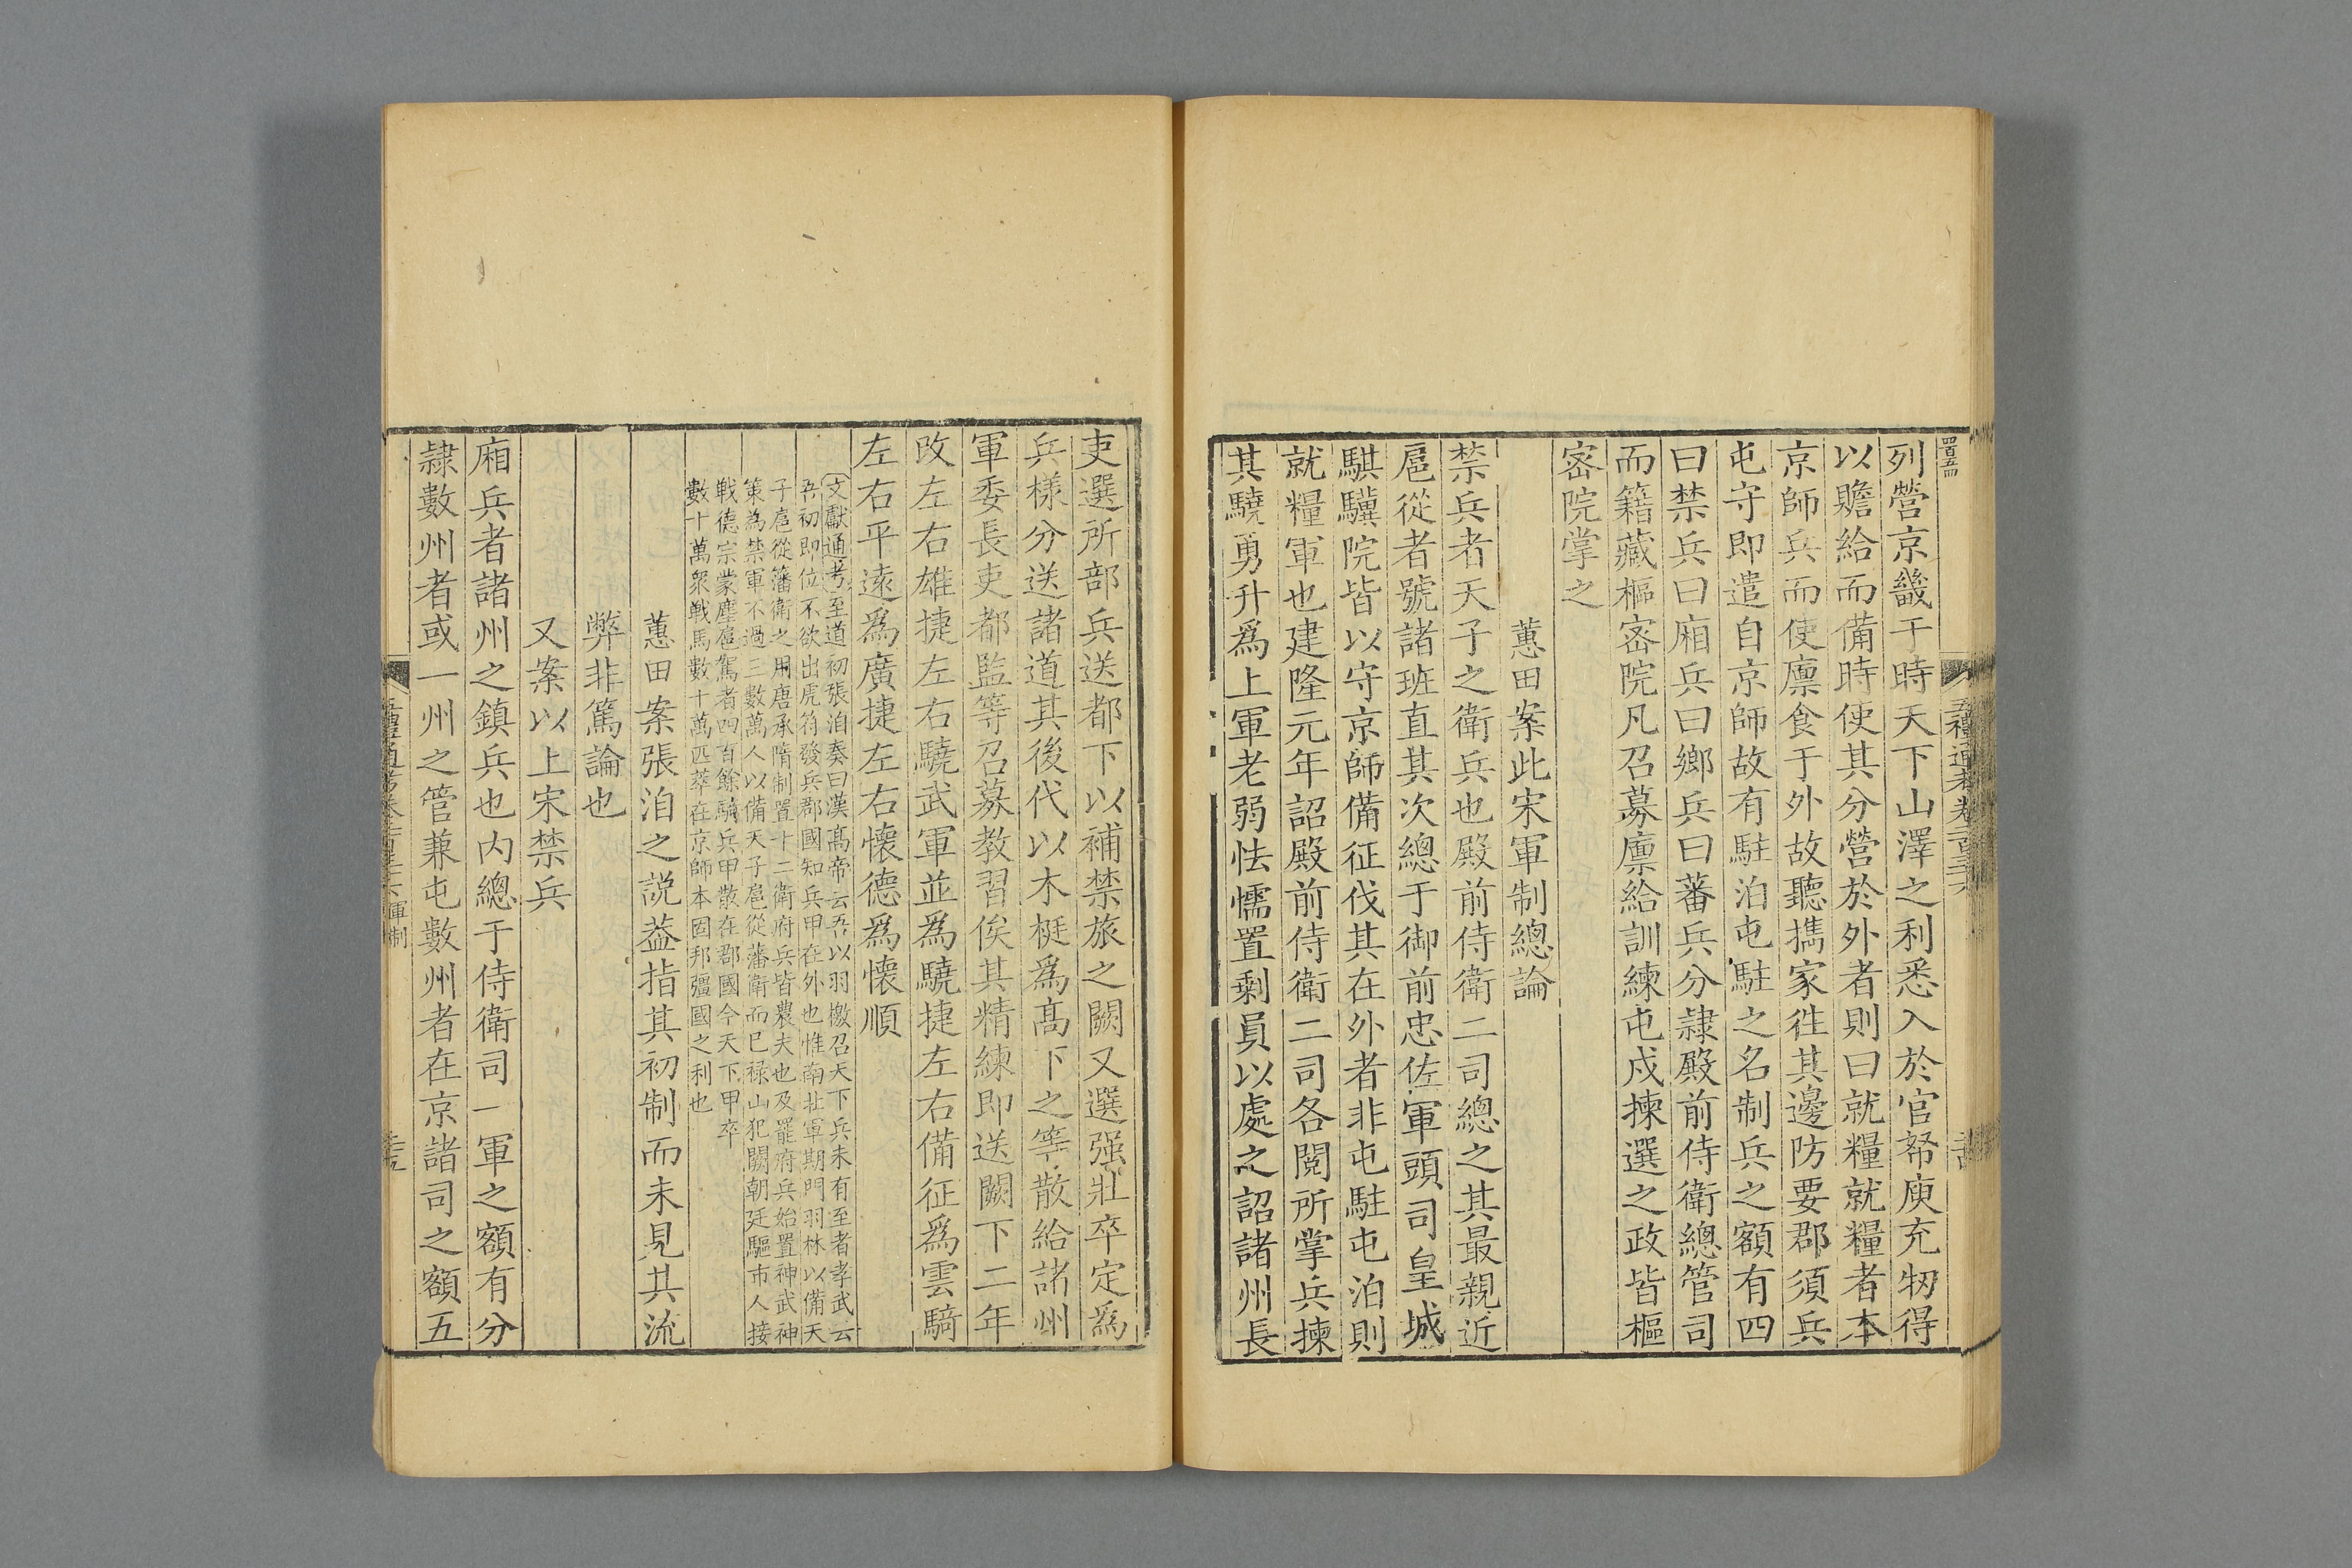 列營京畿于時天下山澤之利悉入於官帑庾充牣得
以贍給而備時使其分營於外者則曰就糧就糧者本
京師兵而使廩食于外故聽擕家徃其邊防要郡須兵
屯守即遣自京師故有駐泊屯駐之名制兵之額有四
曰禁兵曰廂兵曰鄉兵曰蕃兵分隷殿前侍衛總管司
而籍藏樞宻院凡召募廪給訓練屯戍揀選之政皆樞
宻院掌之
蕙田案此宋軍制總論
禁兵者天子之衛兵也殿前侍衛二司總之其最親近
扈從者號諸班直其次總于御前忠佐軍頭司皇城
騏驥院皆以守京師備征伐其在外者非屯駐屯泊則
就糧軍也建隆元年詔殿前侍衛二司各閱所掌兵揀
其驍勇升爲上軍老弱怯懦置剩員以處之詔諸州長
吏選所部兵送都下以補禁旅之闕又選强壯卒定爲
兵樣分送諸道其後代以木梃爲髙下之等散給諸州
軍委長吏都監等召募教習俟其精練即送闕下二年
改左右雄捷左右驍武軍並爲驍捷左右備征爲雲騎
左右平遠爲廣捷左右懐德爲懐順
文獻通考至道初張洎奏曰漢髙帝云吾以羽檄召天下兵未有至者孝武云
吾初即位不欲出虎符發兵郡國知兵甲在外也惟南北軍期門羽林以備天
子扈從藩衛之用唐承隋制置十二衛府兵皆農夫也及罷府兵始置神武神
策為禁軍不過三數萬人以備天子扈從藩衛而已禄山犯闕朝廷驅市人接
戰德宗蒙塵扈駕者四百餘騎兵甲散在郡國今天下甲卒
數十萬衆戰馬數十萬匹萃在京師本固邦彊國之利也
蕙田案張洎之説葢指其初制而未見其流
弊非篤論也
又案以上宋禁兵
廂兵者諸州之鎮兵也内總于侍衛司一軍之額有分
隷數州者或一州之管兼屯數州者在京諸司之額五